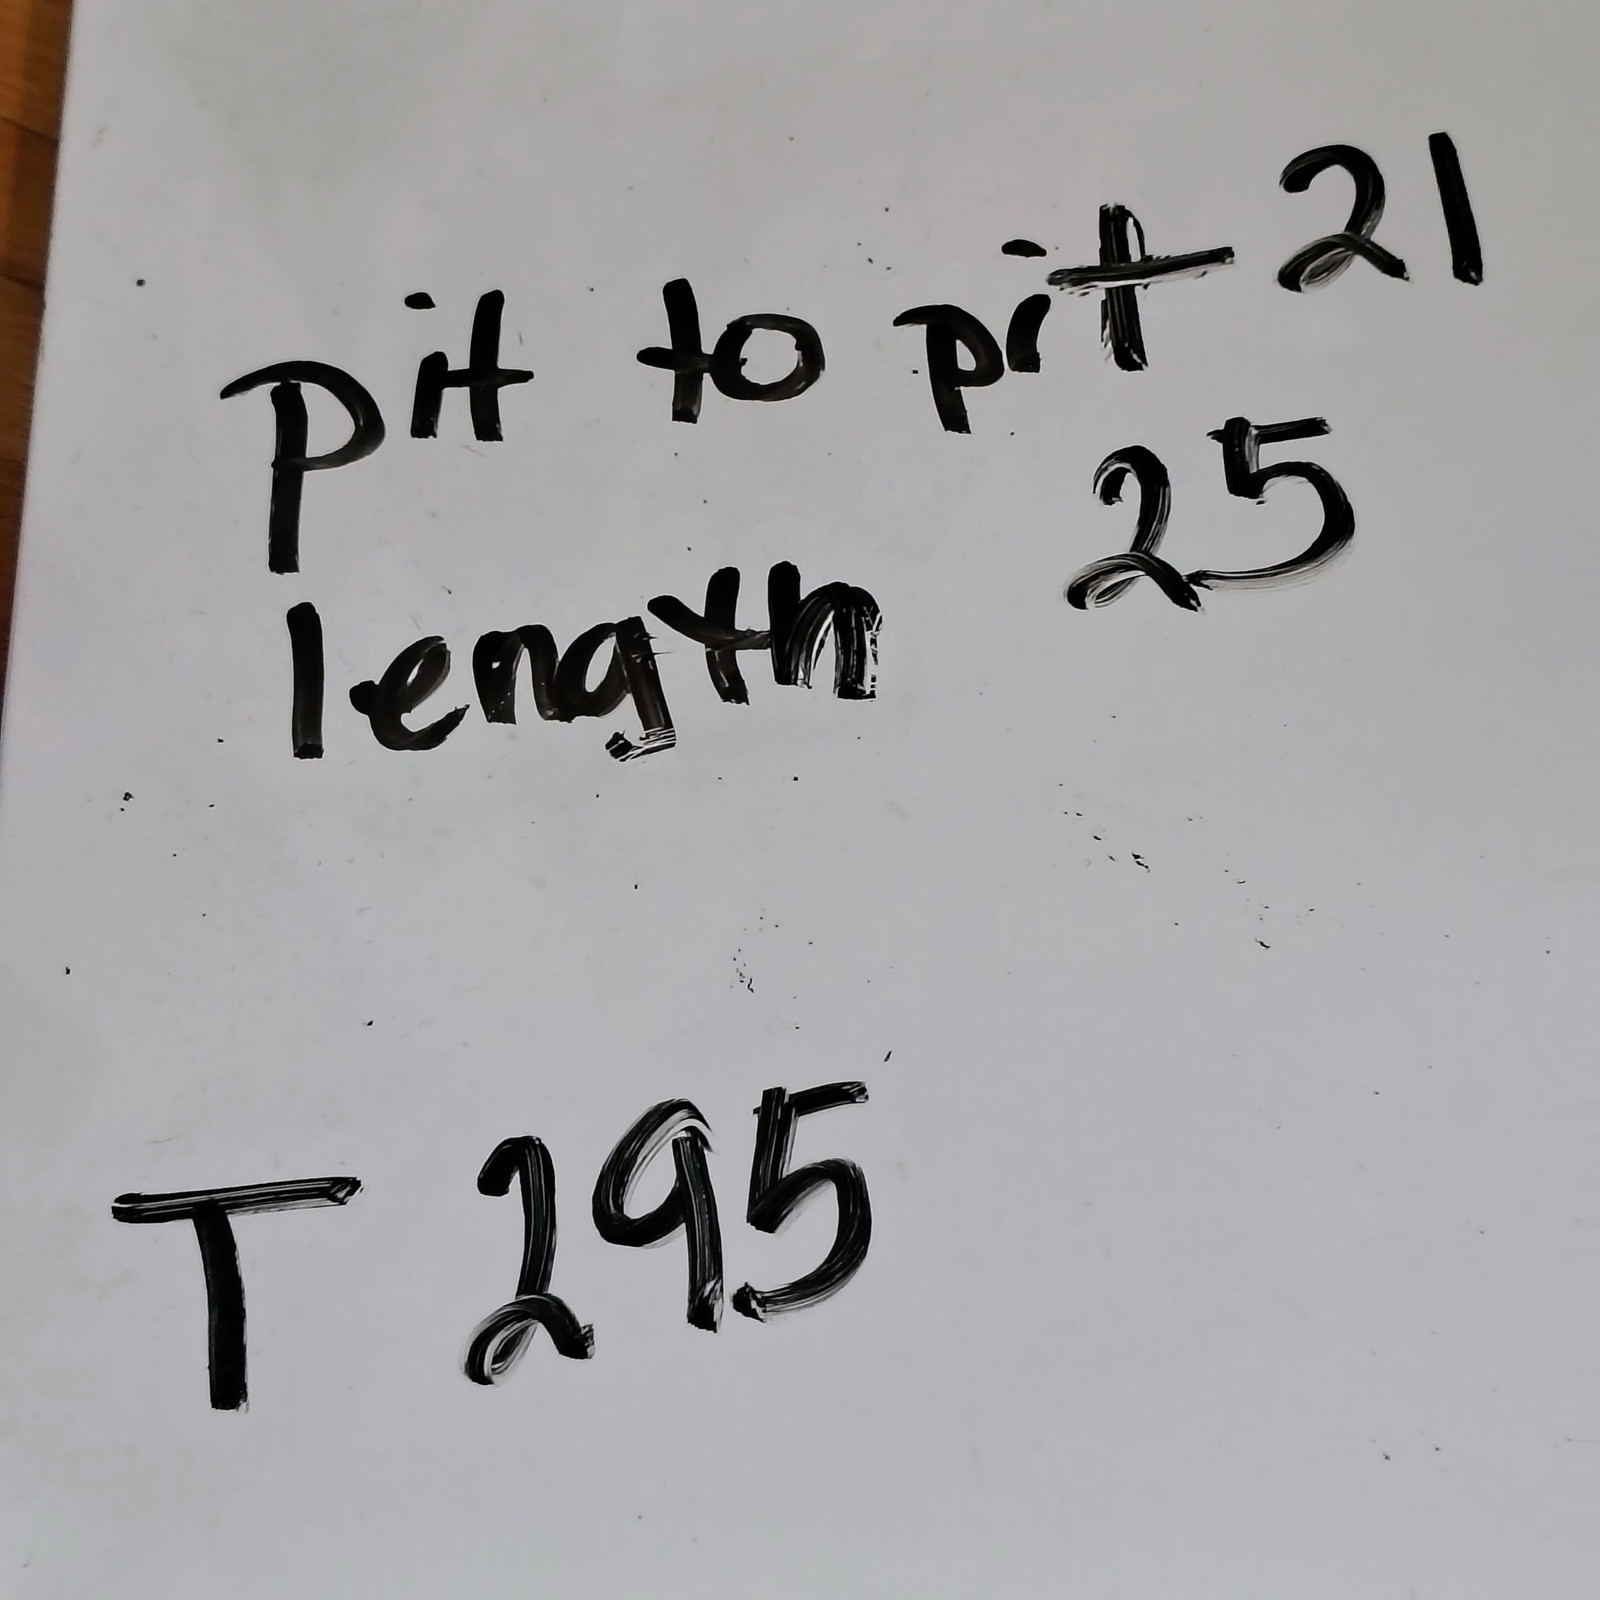 pit to pit 21
length 25
T 295